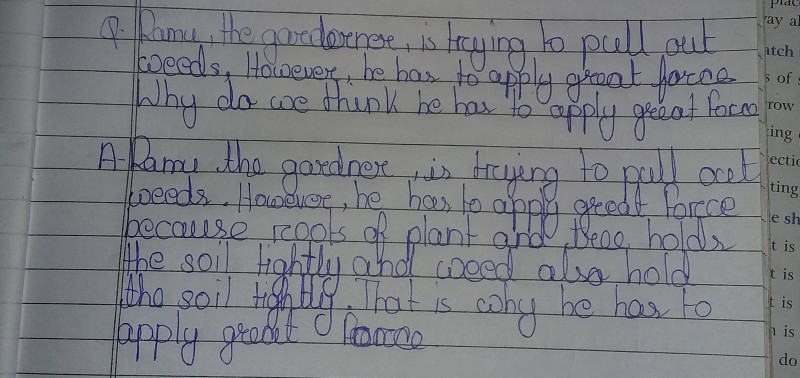 Q. Ramu, the gardernere, is trying to pull out
weeds, However, he has to apply great force
Why do we think he has to apply great force
A- Ramu the gardnere, is trying to pull out
weeds. However, he has to apply great force
because roots of plant and tree holds
the soil tightly and weed also hold
the soil tightly. That is why he has to
apply great force
ray al
atch
s of
row
ing
ectic
ting
e sh
t is
t is
t is
n is
do